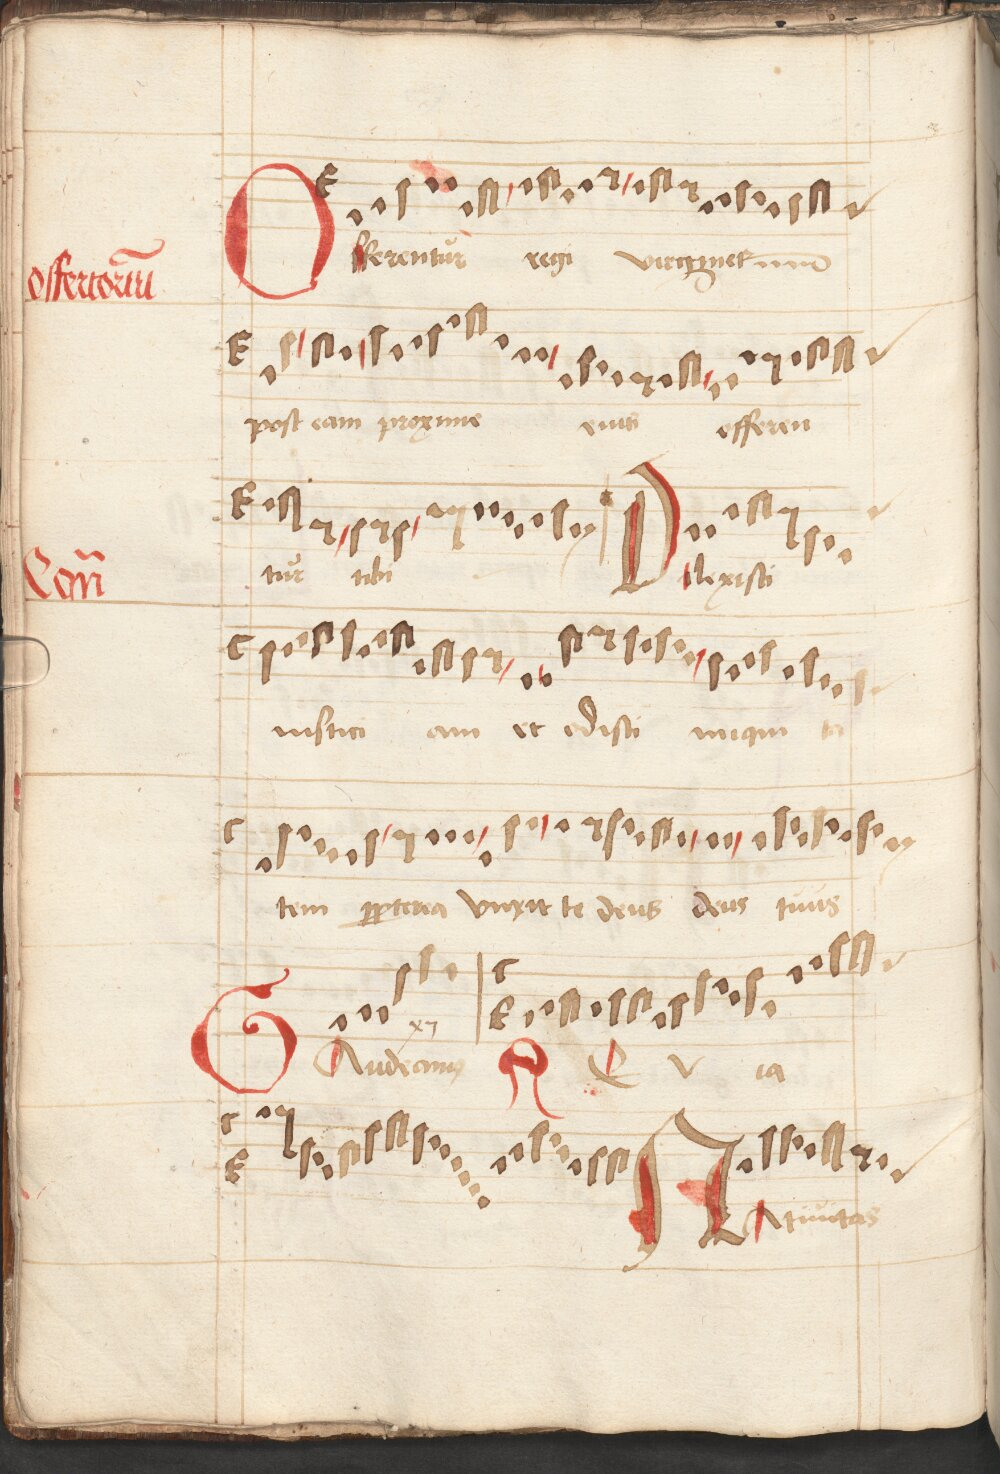 offertoriu
Offerentur regi virgines
post eam proxime eius offeren
Com
tur tibi Dilexisti
iustici am et odisti iniqui ta
tem propterea vnxit te deus deus tuus
Gaudeamus A E V ia
Natiuitas